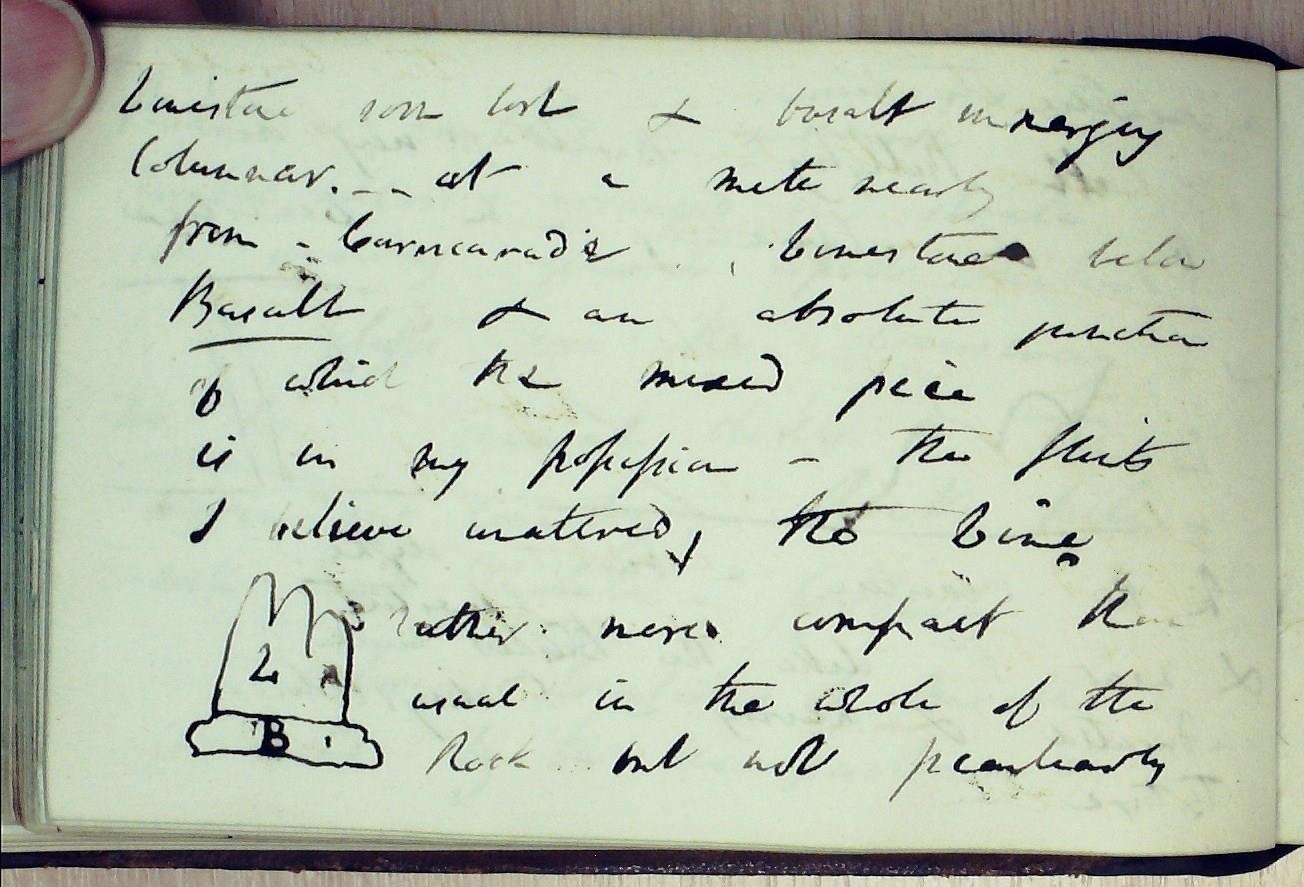 Limestone soon lost & basalt
Columnar. -- at a mile nearly
from - Carncarad's Limestone below
Basalt & an absolute junction
of which the mixed piece
is in my possession - the flints
I believe unaltered, the Lime
rather more compact than
2
usual in the whole of the
B
Rock but not peculiarly